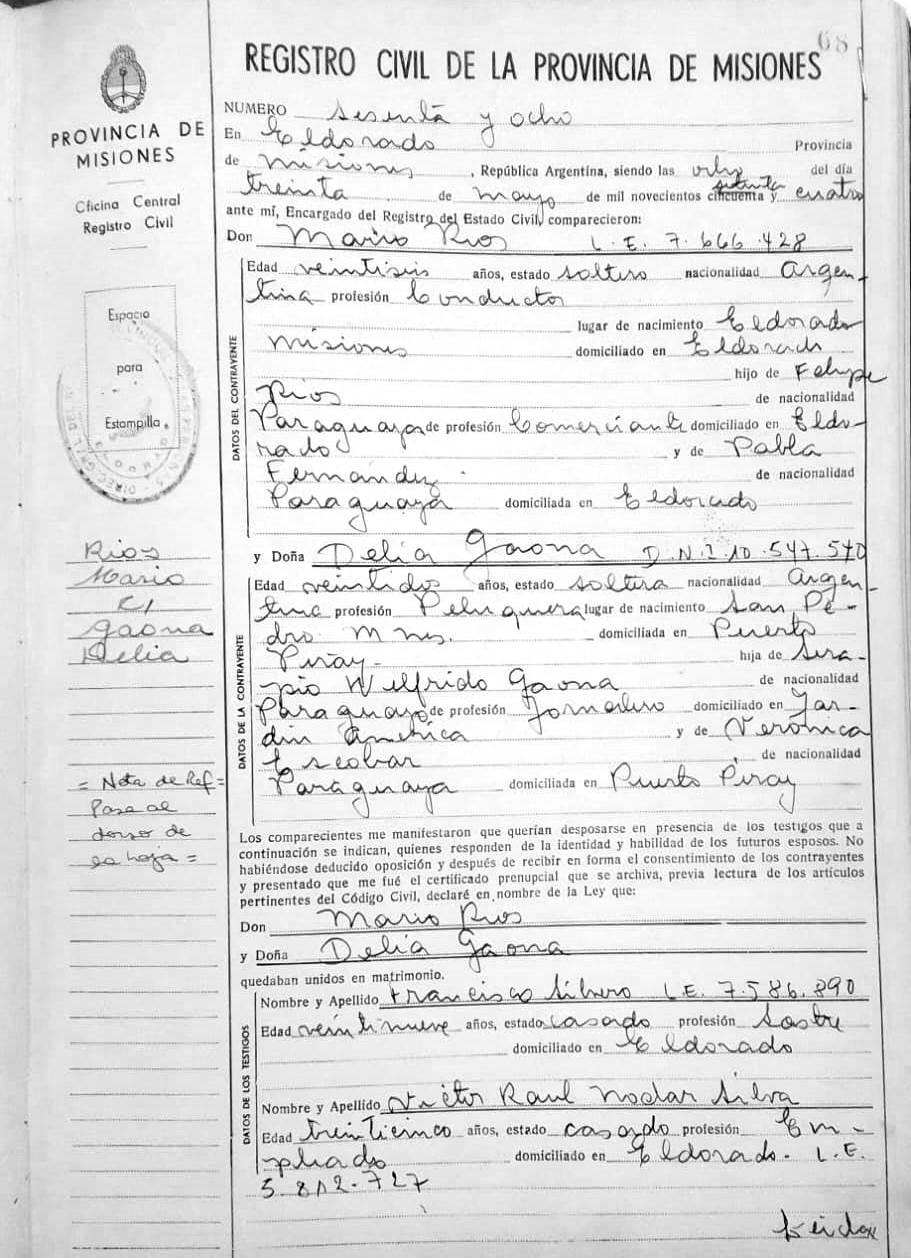 68
REGISTRO CIVIL DE LA PROVINCIA DE MISIONES
PROVINCIA DE
MISIONES
Oficina Central
Registro Civil
Espacio
para
Estampilla
Rios
Mario
c/
Gaona
Delia
= Nota de Ref =
Pasa al
dorso de
la hoja =
NUMERO Sesenta y ocho
En Eldorado Provincia
de Misiones, República Argentina, siendo las del día
treinta de mayo de mil novecientos cincuenta setenta y cuatro
ante mí, Encargado del Registro del Estado Civil, comparecieron:
Don Mario Rios L.E. 7.666.428
DATOS DEL CONTRAYENTE
Edad veintiseis años, estado soltero nacionalidad Argen-
tina profesión Conductor
lugar de nacimiento Eldorado
Misiones domiciliado en Eldorado
hijo de Felipe
Rios de nacionalidad
Paraguaya de profesión Comerciante domiciliado en Eldo-
rado y de Pabla
Fernandez de nacionalidad
Paraguaya domiciliada en Eldorado
y Doña Delia Gaona D.N.I. 10.547.570
DATOS DE LA CONTRAYENTE
Edad veintidos años, estado soltera nacionalidad Argen-
tina profesión Peluquera lugar de nacimiento San Pe-
dro Mnes. domiciliada en Puerto
Piray- hija de Sera-
pio Wilfrido Gaona de nacionalidad
Paraguayo de profesión Jornalero domiciliado en Jar-
din America y de Verónica
Escobar de nacionalidad
Paraguaya domiciliada en Puerto Piray
Los comparecientes me manifestaron que querían desposarse en presencia de los testigos que a
continuación se indican, quienes responden de la identidad y habilidad de los futuros esposos. No
habiéndose deducido oposición y después de recibir en forma el consentimiento de los contrayentes
y presentado que me fué el certificado prenupcial que se archiva, previa lectura de los artículos
pertinentes del Código Civil, declaré en nombre de la Ley que:
Don Mario Rios
y Doña Delia Gaona
quedaban unidos en matrimonio.
DATOS DE LOS TESTIGOS
Nombre y Apellido Francisco Silvero L.E. 7.586.890
Edad veintinueve años, estado casado profesión Sastre
domiciliado en Eldorado
Nombre y Apellido Victor Raul Nodar Silva
Edad treinticinco años, estado casado profesión Em-
pleado domiciliado en Eldorado. L.E.
5.812.727
Leida